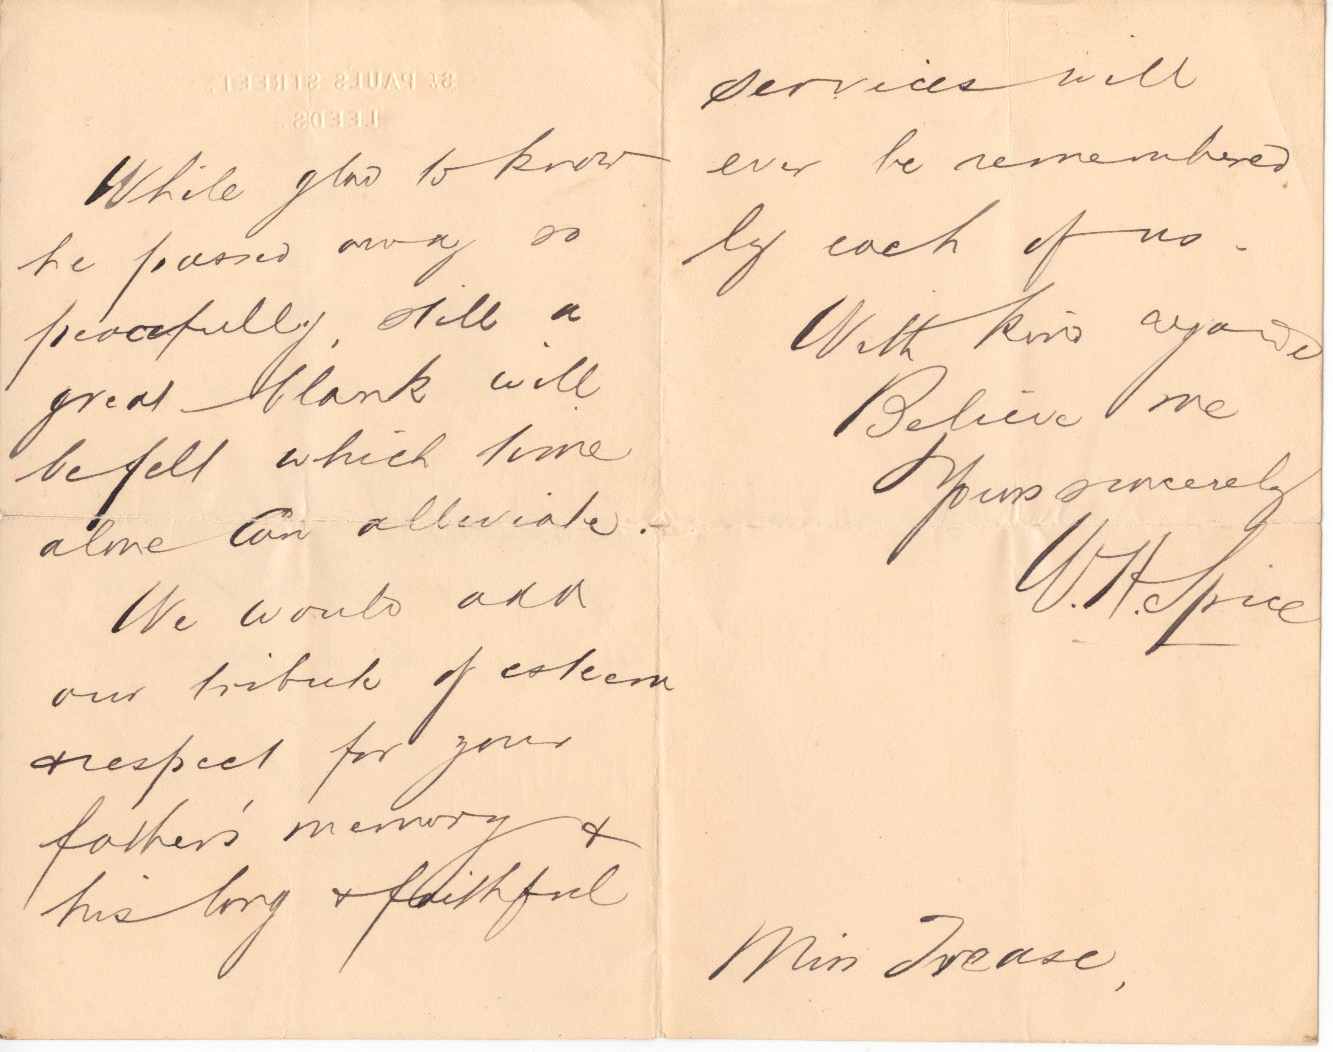 PAUL'S STREET,
LEEDS.
While glad to know
he passed away so
peacefully, still a
great blank will
be felt which time
alone can alleviate.
We would add
our tribute of esteem
& respect for your
father's memory &
his long & faithful
services will
ever be remembered
by each of us.
With kind regards
Believe me
Yours sincerely
W. H. Spice
Miss Trease,